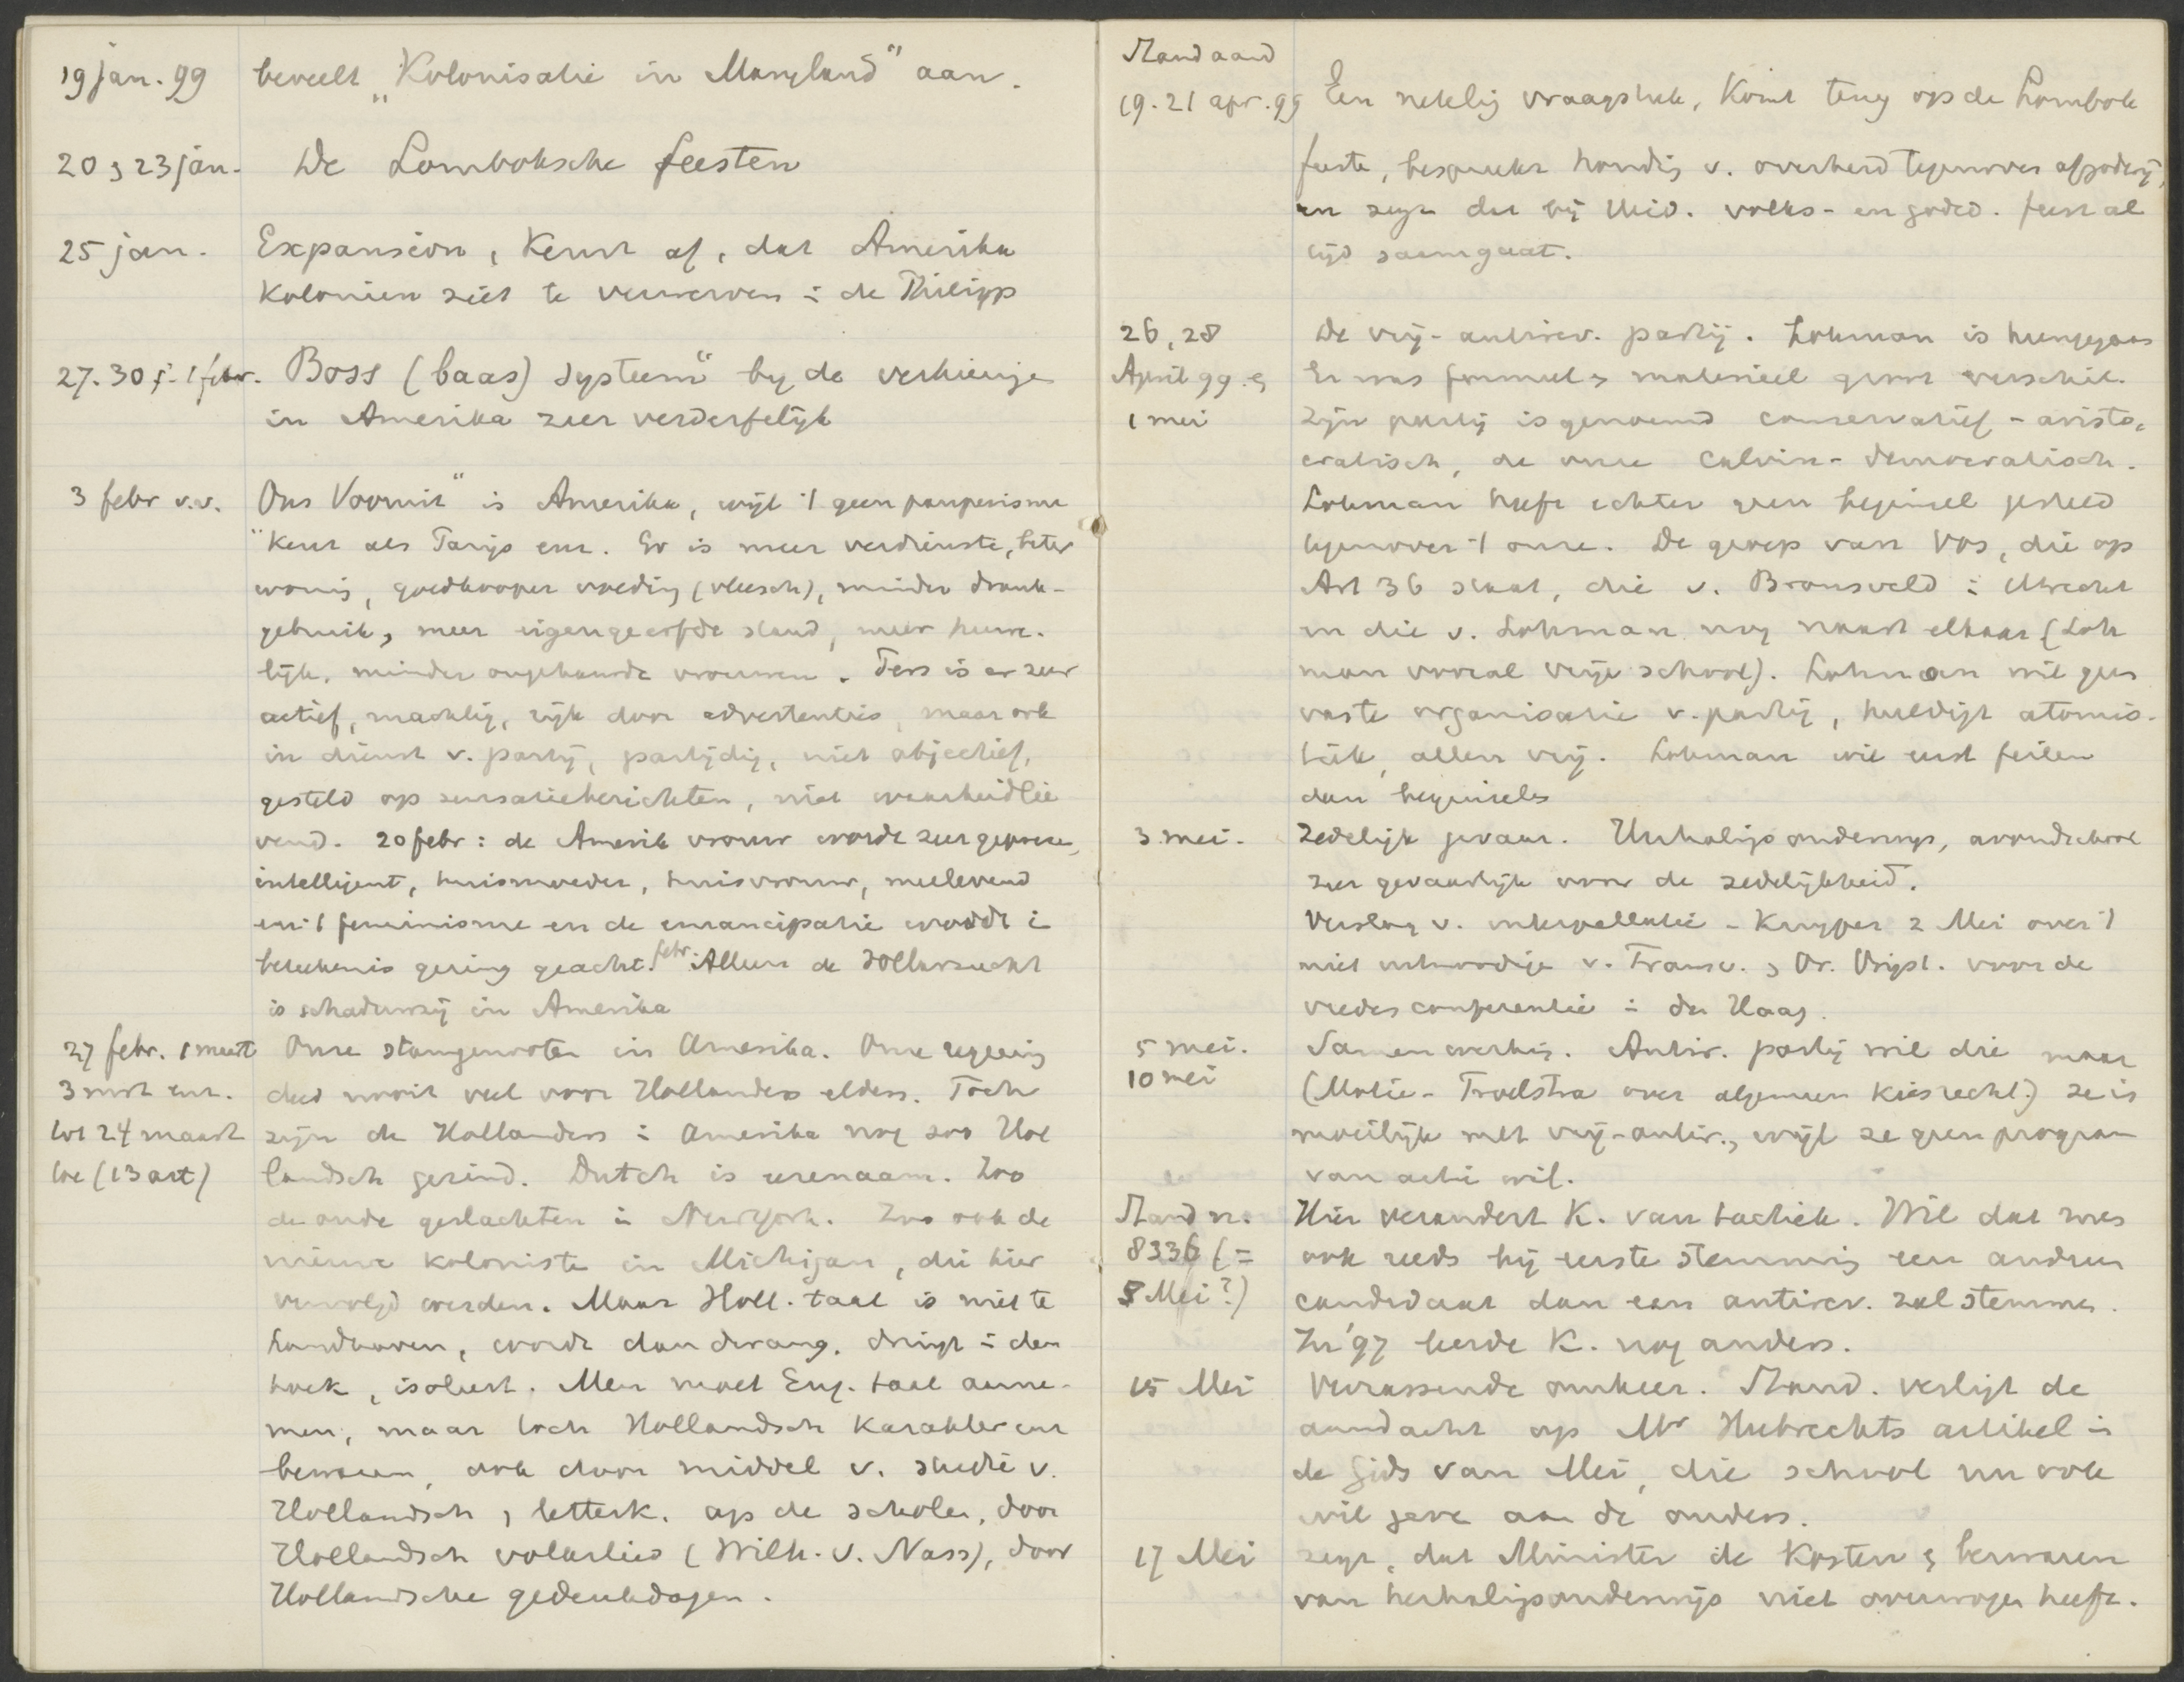 19 jan. 99 beveelt „Kolonisatie in Maryland" aan.
20 & 23 jan. De Lomboksche feesten
25 jan. Expansion, Keurt af, dat Amerika
Kolonien ziet te verwerven : de Philipp
27. 30 j. 1 febr. Boss (baas) systeem" by de verkiezinge
in Amerika zeer verderfelijk
3 febr v.v. Ons Vooruit" is Amerika, wijl 't geen pauperisme
kent als Parijs enz. Er is meer verdienste, beter
woning, goedkooper voeding (vleesch), minder drank-
gebruik, meer eigengeerfde stand, meer huwe-
lijk, minder ongehuwde vrouwen. Pers is er zeer
actief, machtig, rijk door advertenties, maar ook
in dienst v. partij, partijdig, niet objectief,
gesteld op sensatieberichten, niet waarheidlie
vend. 20 febr: de Amerik vrouw wordt zeer geprezen,
intelligent, huismoeder, huisvrouw, meelevend
en 't feminisme en de emancipatie wordt i
beteekenis gering geacht. febr. Alleen de dollarzucht
is schaduwzij in Amerika
27 febr. 1 maart Onze stamgenoten in Amerika. Onze regeering
3 mrt enz. deed nooit veel voor Hollanders elders. Toch
tot 24 maart zijn de Hollanders : Amerika nog zoo Hol
toe (13 art) landsch gezind. Dutch is eerenaam. Zoo
de oude geslachten in NewYork. Zoo ook de
nieuwe koloniste in Michigan, die hier
vervolgd werden. Maar Holl. taal is niet te
handhaven, wordt dan dwang, dringt : den
hoek, isoleert. Men moet Eng. taal aanne-
men, maar toch Hollandsch karakter enz
bewaren, ook door middel v. studie v.
Hollandsch & letterk. op de scholen, door
Hollandsch volkslied (Wilh. v. Nass), door
Hollandsche gedenkdagen.
Standaard
19. 21 apr. 99 Een netelig vraagstuk, Komt terug op de Lombok
feeste, bespreekt houdig v. overheid tegenover afgoderij,
en zegt dat bij Heid. volks- en godsd. feest al
tijd saamgaat.
26, 28 De vrij-antirev. partij. Lohman is heengegaan
April 99 & Er was formeel & materieel groot verschil.
1 mei Zijn partij is genoemd conservatief-aristo-
cratisch, de onze Calvin-democratisch.
Lohman heeft echter geen beginsel gesteld
tegenover 't onze. De groep van Vos, die op
Art 36 staat, die v. Bronsveld : Utrecht
en die v. Lohman nog naast elkaar (Loh
man vooral vrije school). Lohman wil geen
vaste organisatie v. partij, huldigt atomis-
tiek, allen vrij. Lohman wil eerst feiten
dan beginsels
3 mei. Zedelijk gevaar. Herhalingsonderwijs, avondschool
zeer gevaarlijk voor de zedelijkheid.
Verslag v. interpellatie-Kuyper 2 Mei over 't
niet uitnoodige v. Transv. & Or. Vrijst. voor de
vredesconferentie : den Haag.
5 mei. Samenwerking. Antir. partij wil die maar
10 mei (Motie-Troelstra over algemeen kiesrecht.) ze is
moeilijk met vrij-antir., wijl ze geen program
van actie wil.
Stand nr. Hier verandert K. van tactiek. Wil dat men
8336 (= ook reeds bij eerste stemming een andren
8 Mei?) candidaat dan een antirev. zal stemmen.
In '97 leerde K. nog anders.
15 Mei Verrassende ommekeer. Stand. vestigt de
aandacht op Mr Hubrechts artikel in
de Gids van Mei, die school nu ook
wil geve aan de ouders.
17 Mei zegt, dat Minister de kosten & bezwaren
van herhalingsonderwijs niet overwogen heeft.